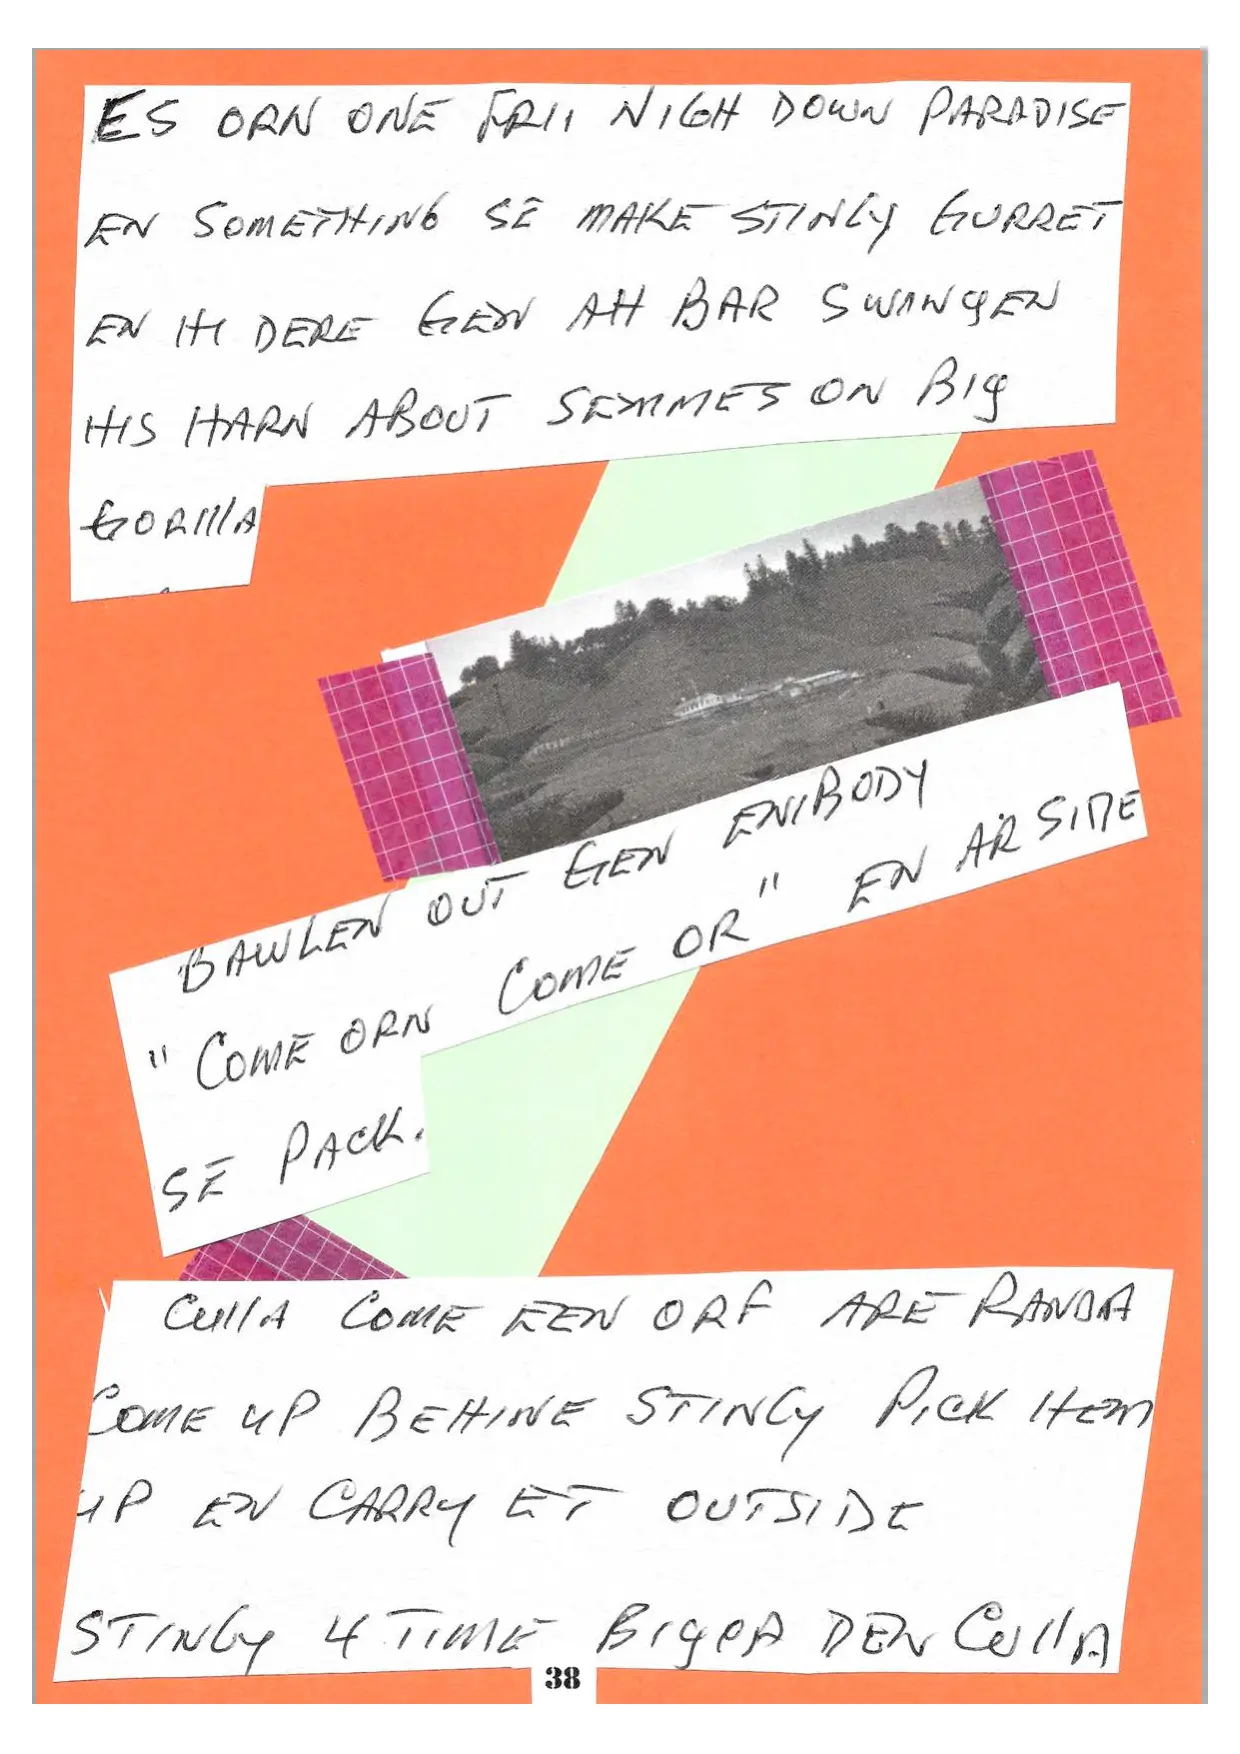 ES ORN ONE FRII NIGH DOWN PARADISE
EN SOMETHING SE MAKE STINGY GURRET
EN HI DERE GEN AH BAR SWINGEN
HIS HARN ABOUT SEMMES ON BIG
GORILLA
BAWLEN OUT GEN ENIBODY
"COME ORN COME OR" EN AR SIDE
SE PACK.
CULLA COME EEN ORF ARE RANDA
COME UP BEHINE STINGY PICK HEM
UP EN CARRY ET OUTSIDE
STINGY 4 TIME BIGGA DEN CULLA
38